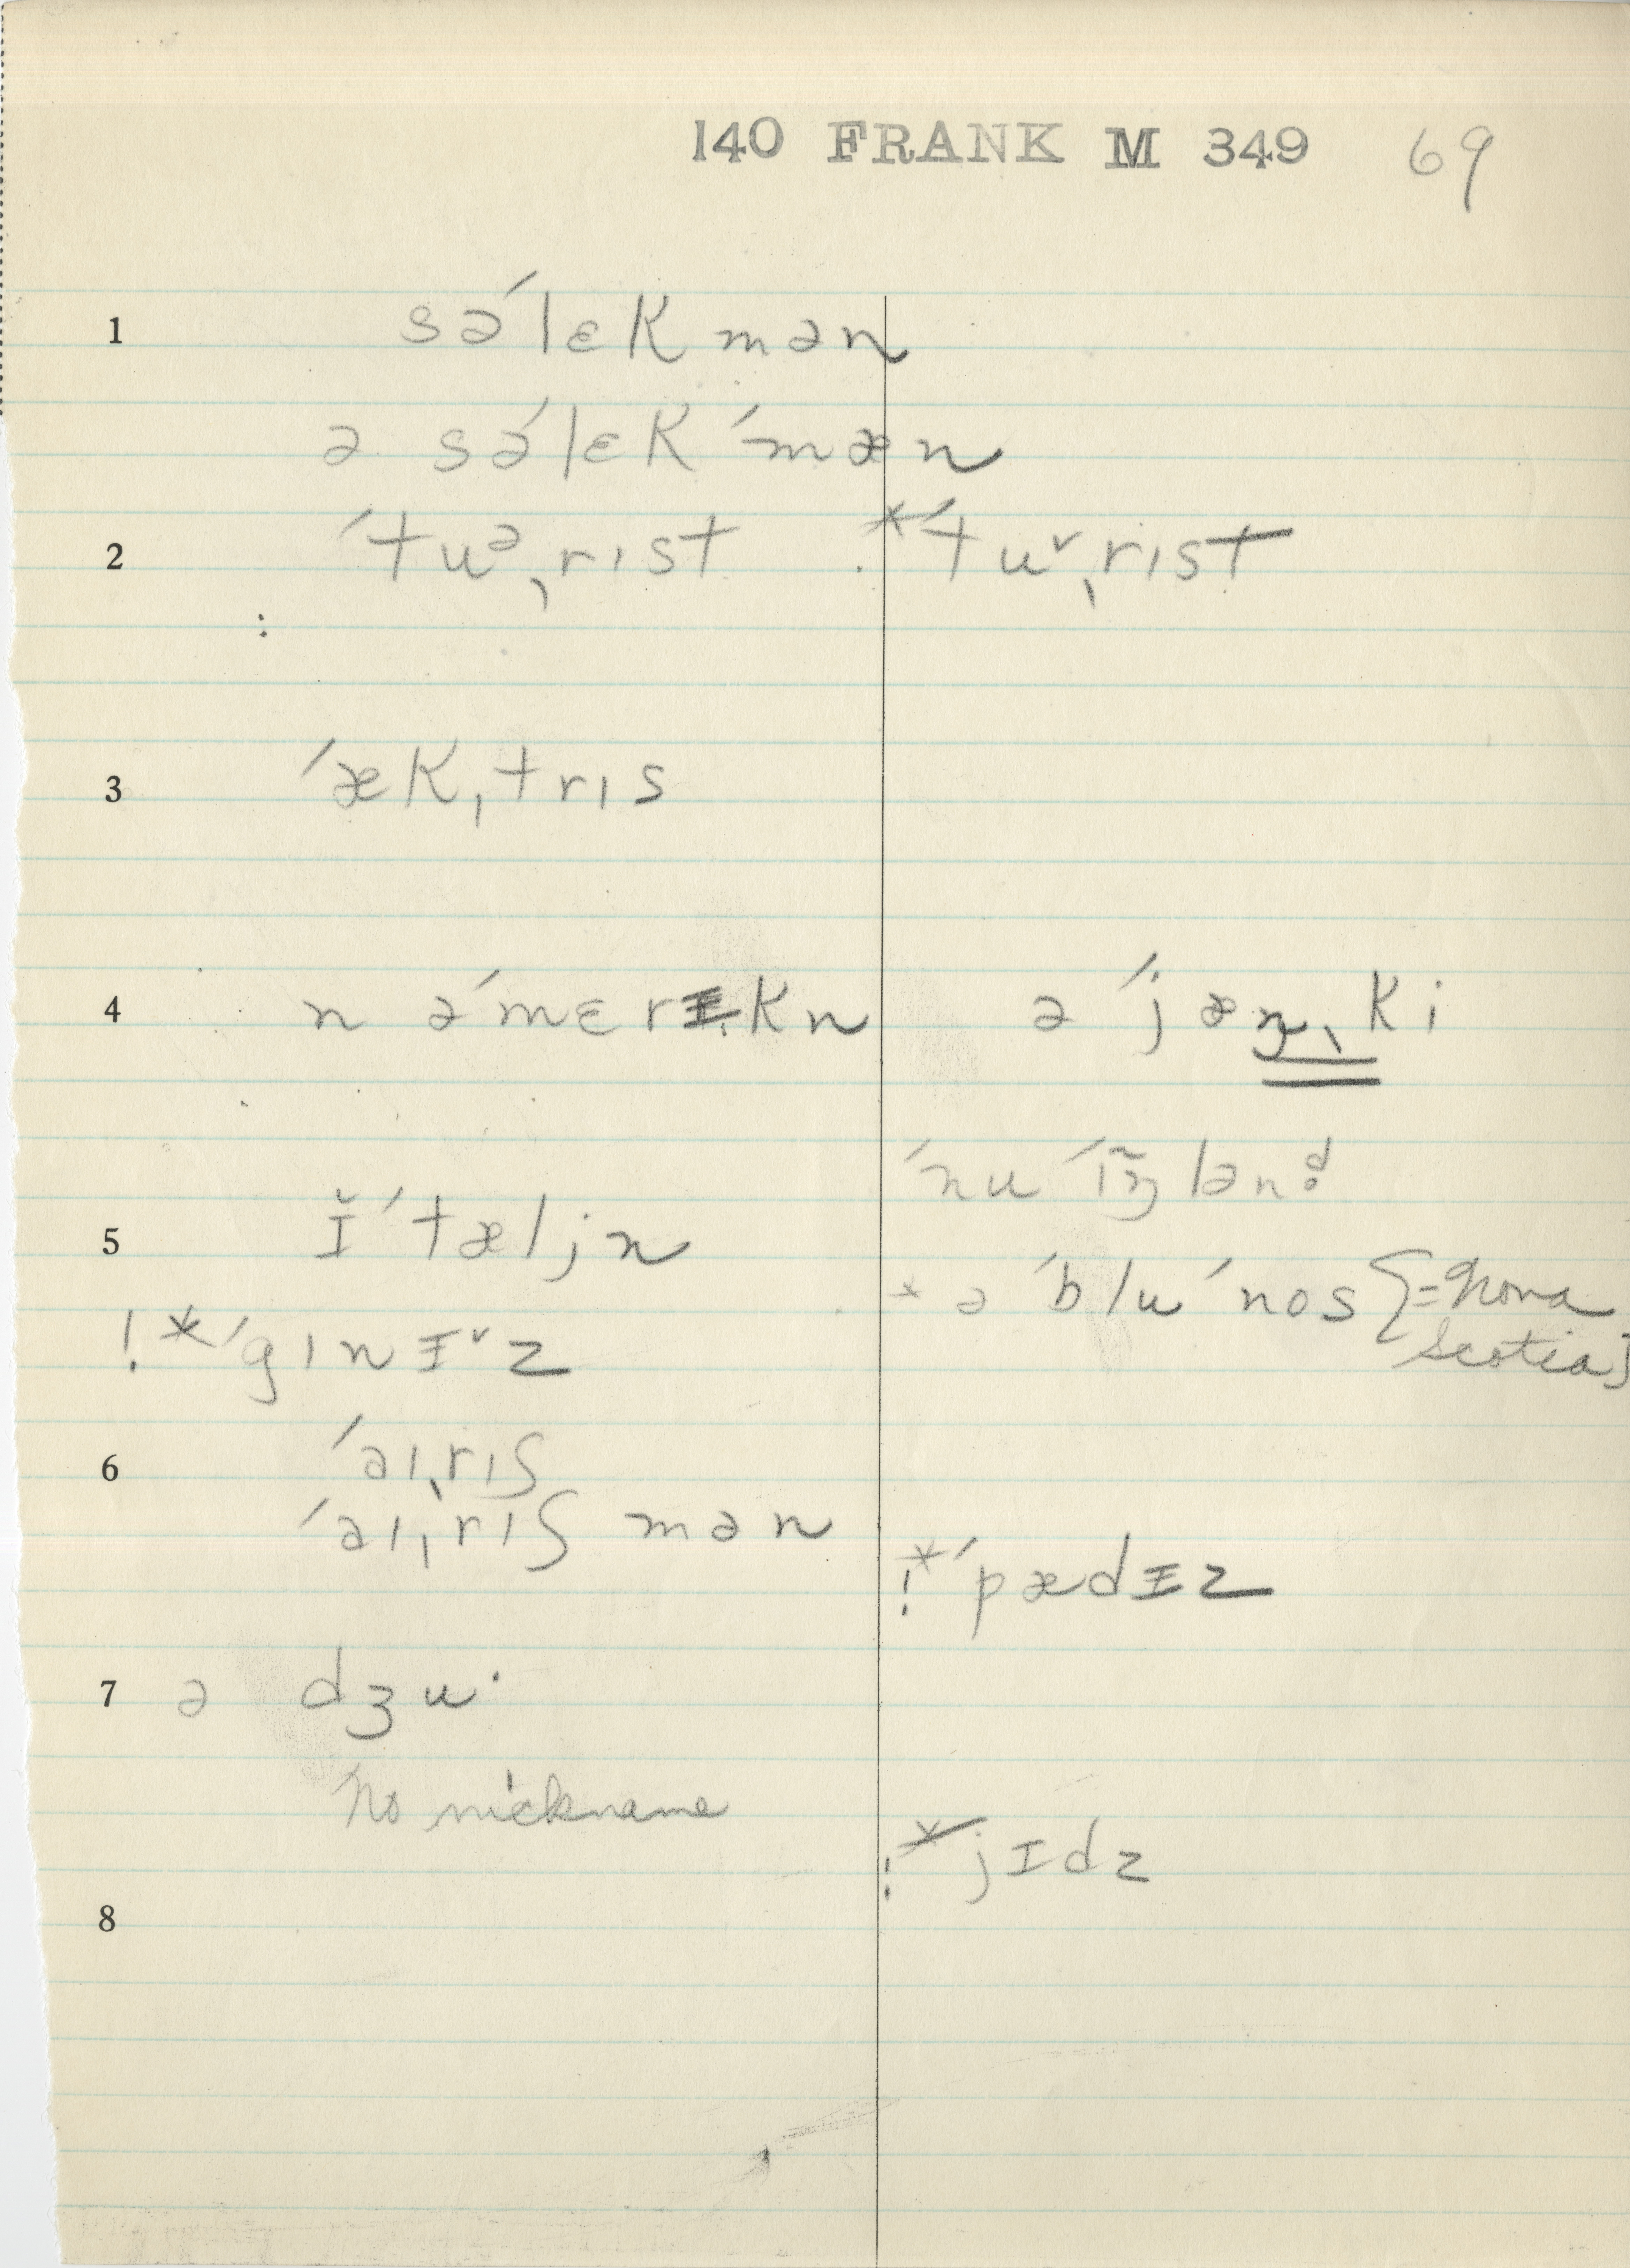 140 FRANK M 349 69
1 sə́lɛkmən
ə sə́lɛkˈmæn
2 ˈtuᵊˌrɪst *ˈtu˅ˌrɪst
:
3 ˈækˌtrɪs
4 n əˈmɛrɪkn ə ˈjæŋˌki
ˈnu ˈɪ̃ŋlənd̥
5 ɪ̆ˈtæljn
* ə ˈblu ˈnos [=Nova
Scotia]
!*ˈgɪnɪ˅z
6 ˈaɪˌrɪʃ
ˈaɪˌrɪʃ mən
!*ˈpædɪz
7 ə dʒuˑ
No nickname
!*jɪdz
8